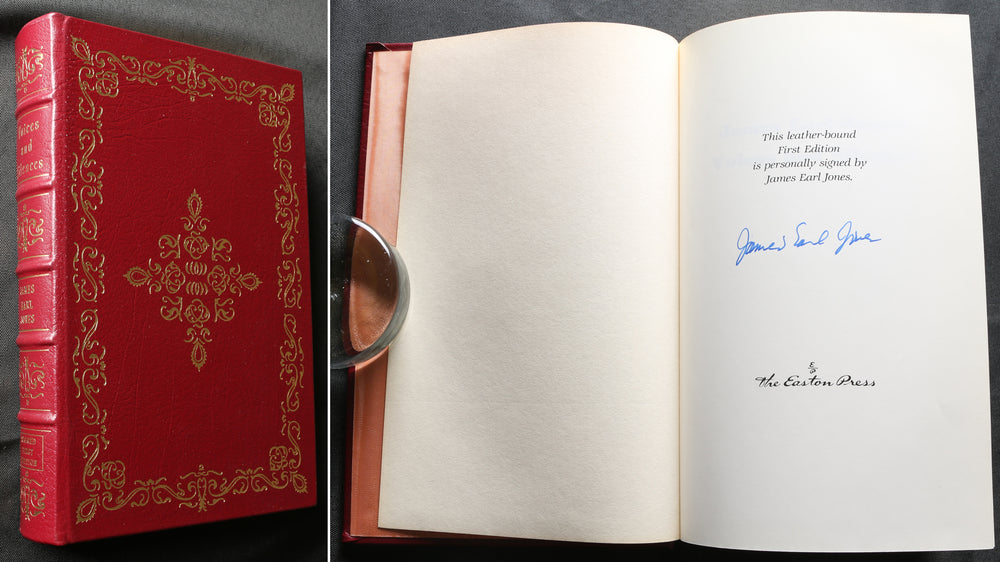 Voices
and
Silences
JAMES
EARL
JONES
SIGNED
FIRST
EDITION
This leather-bound
First Edition
is personally signed by
James Earl Jones.
James Earl Jones
The Easton Press